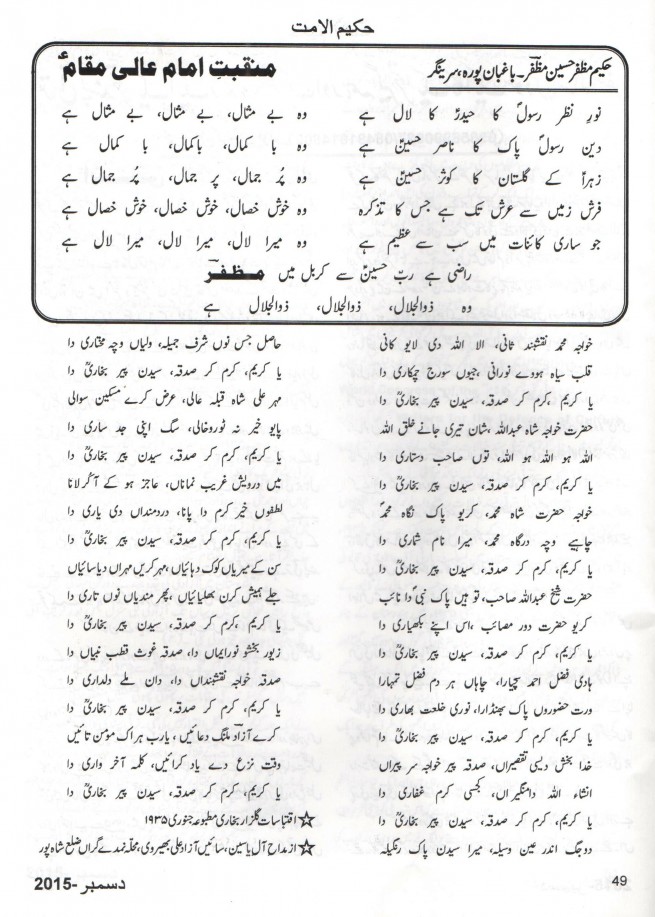 حکیم الامت
حکیم مظفر حسین مظفرؔ۔ باغبان پورہ، سرینگر
منقبتِ امام عالی مقامؑ
نورِ نظر رسولؐ کا حیدرؑ کا لال ہے
وہ بے مثال، بے مثال، بے مثال ہے
دین رسولِ پاک کا ناصر حسینؑ ہے
وہ با کمال، باکمال، با کمال ہے
زہراؑ کے گلستان کا کوثر حسینؑ ہے
وہ پُر جمال، پر جمال، پُر جمال ہے
فرش زمیں سے عرش تک ہے جس کا تذکرہ
وہ خوش خصال، خوش خصال، خوش خصال ہے
جو ساری کائنات میں سب سے عظیم ہے
وہ میرا لال، میرا لال، میرا لال ہے
راضی ہے ربِّ حسینؑ سے کربل میں مظفرؔ
وہ ذوالجلال، ذوالجلال، ذوالجلال ہے
خواجہ محمد نقشبند ثانی، الا اللہ دی لایو کانی
قلب سیاہ ہووے نورانی، جیوں سورج چمکاری دا
یا کریم، کرم کر صدقہ، سیدن پیر بخاریؒ دا
حضرت خواجہ شاہ عبداللہ، شان تیری جانے خلق اللہ
اللہ ہو اللہ ہو اللہ، توں صاحب دستاری دا
یا کریم، کرم کر صدقہ، سیدن پیر بخاریؒ دا
خواجہ حضرت شاہ محمد، کریو پاک نگاہ محمدؐ
چاہیے وچہ درگاہ محمد، میرا نام شماری دا
یا کریم، کرم کر صدقہ، سیدن پیر بخاریؒ دا
حضرت شیخ عبداللہ صاحب، تو ہیں پاک نبیؐ دا نائب
کریو حضرت دور مصائب، اس اپنے بکھیاری دا
یا کریم، کرم کر صدقہ، سیدن پیر بخاریؒ دا
ہادی فضل احمد سچیارا، چاہاں ہر دم فضل تمہارا
ورت حضوروں پاک بھنڈارا، نوری خلعت بھاری دا
یا کریم، کرم کر صدقہ، سیدن پیر بخاریؒ دا
خدا بخش دیسی تقصیراں، صدقہ پیر خواجہ سر پیراں
انشاء اللہ دامنگیراں، کجسی کرم غفاری دا
یا کریم، کرم کر صدقہ، سیدن پیر بخاریؒ دا
دوجگ اندر عین وسیلہ، میرا سیدن پاک رنگیلہ
حاصل جس نوں شرف جمیلہ، ولیاں وچہ مختاری دا
یا کریم، کرم کر صدقہ، سیدن پیر بخاریؒ دا
مہر علی شاہ قبلہ عالی، عرض کرے مسکین سوالی
پایو خیر نہ ٹوروخالی، سگ اپنی جد ساری دا
یا کریم، کرم کر صدقہ، سیدن پیر بخاریؒ دا
میں درویش غریب نماناں، عاجز ہو کے آ گر لانا
لطفوں خیر کرم دا پانا، دردمنداں دی یاری دا
یا کریم، کرم کر صدقہ، سیدن پیر بخاریؒ دا
سن کے میریاں کوک دہائیاں، مہر کریں مہراں دیا سائیاں
جلے ہمیش کرن بھلیائیاں، پھر مندیاں نوں تاری دا
یا کریم، کرم کر صدقہ، سیدن پیر بخاریؒ دا
زیور بخشو نور ایماں دا، صدقہ غوث قطب نبیاں دا
صدقہ خواجہ نقشبنداں دا، دان ملے دلداری دا
یا کریم، کرم کر صدقہ، سیدن پیر بخاریؒ دا
کرے آزاد ملنگ دعائیں، یارب ہر اک مؤمن تائیں
وقت نزع دے یاد کرائیں، کلمہ آخر واری دا
یا کریم، کرم کر صدقہ، سیدن پیر بخاریؒ دا
☆ اقتباسات گلزار بخاری مطبوعہ جنوری ۱۹۳۵
☆ از مداح آل یاسین، سائیں آزاد علی بھیروی، محلہ نمدے گراں ضلع شاہ پور
49
دسمبر -2015